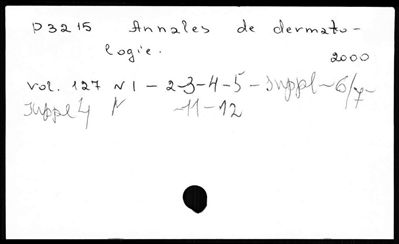 P3215 Annales de dermato-
logie.
2000
vol. 127 N 1 - 2-3-4-5 - suppl - 6/7-
suppl 4 N -11-12